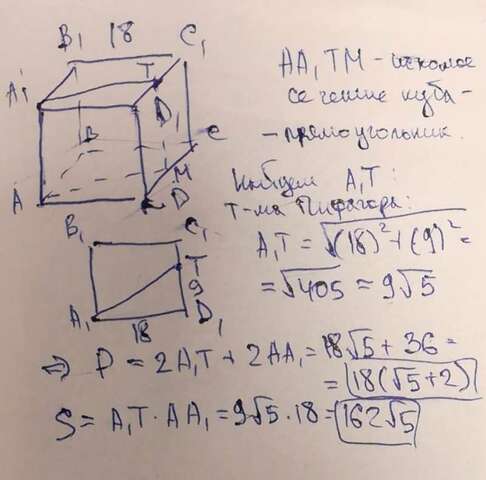 B₁ 18 C₁
A₁ T D₁
B C
A M D
AA₁TM - искомое
сечение куба -
- прямоугольник.
Найдем A₁T :
т-ма Пифагора:
B₁ C₁
T
9
A₁ 18 D₁
A₁T = √(18)² + (9)² =
= √405 = 9√5
⇒ P = 2A₁T + 2AA₁ = 18√5 + 36 =
= 18(√5 + 2)
S = A₁T · AA₁ = 9√5 · 18 = 162√5